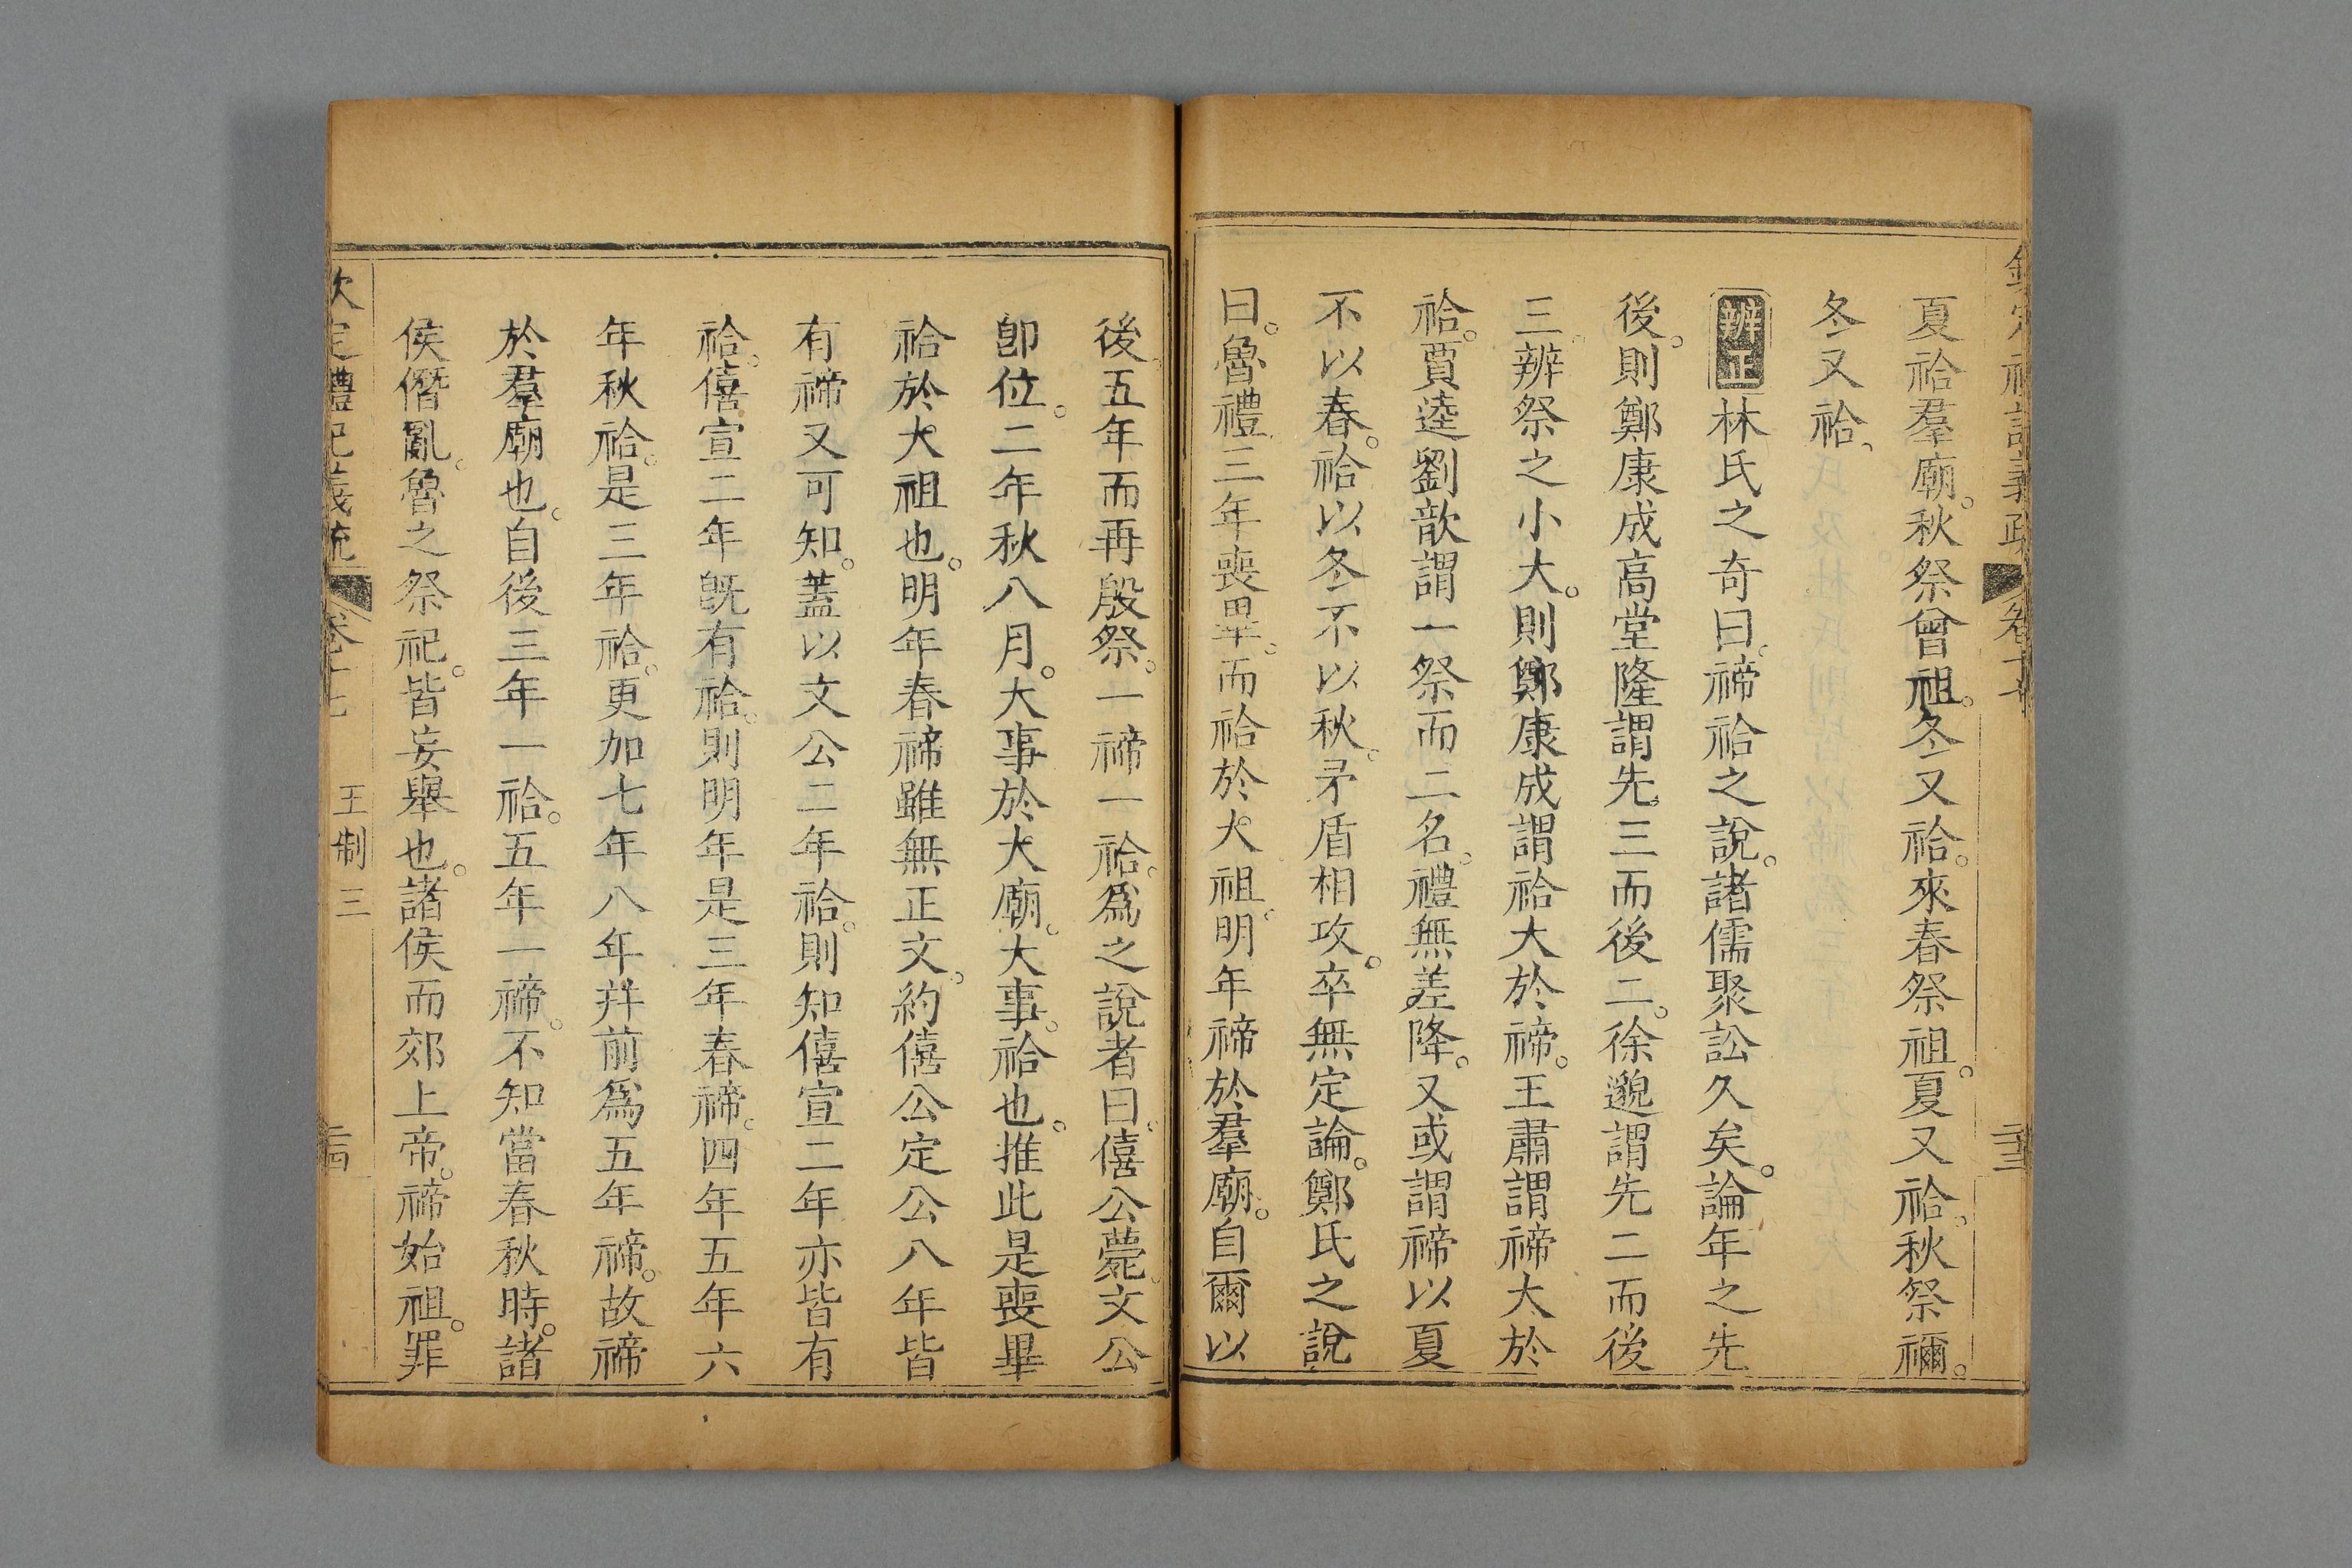 夏祫羣廟。秋祭曾祖。冬又祫。來春祭祖。夏又祫。秋祭禰。
冬又祫、
辨正林氏之奇曰。禘祫之說。諸儒聚訟久矣。論年之先
後。則鄭康成高堂隆謂先三而後二。徐邈謂先二而後
三。辨祭之小大。則鄭康成謂祫大於禘。王肅謂禘大於
祫。賈逵劉歆謂一祭而二名。禮無差降。又或謂禘以夏
不以春。祫以冬不以秋。矛盾相攻。卒無定論。鄭氏之說
曰。魯禮三年喪畢。而祫於大祖。明年禘於羣廟。自爾以
後。五年而再殷祭。一禘一祫。爲之說者曰。僖公薨。文公
卽位。二年秋八月。大事於大廟。大事。祫也。推此是喪畢
祫於大祖也。明年春禘雖無正文。約僖公定公八年皆
有禘又可知。蓋以文公二年祫。則知僖宣二年亦皆有
祫。僖宣二年旣有祫。則明年是三年春禘。四年五年六
年秋祫。是三年祫。更加七年八年幷前爲五年禘。故禘
於羣廟也。自後三年一祫。五年一禘。不知當春秋時。諸
侯僭亂。魯之祭祀。皆妄舉也。諸侯而郊上帝。禘始祖。罪
欽定禮記義疏 卷十七 王制三 二十四